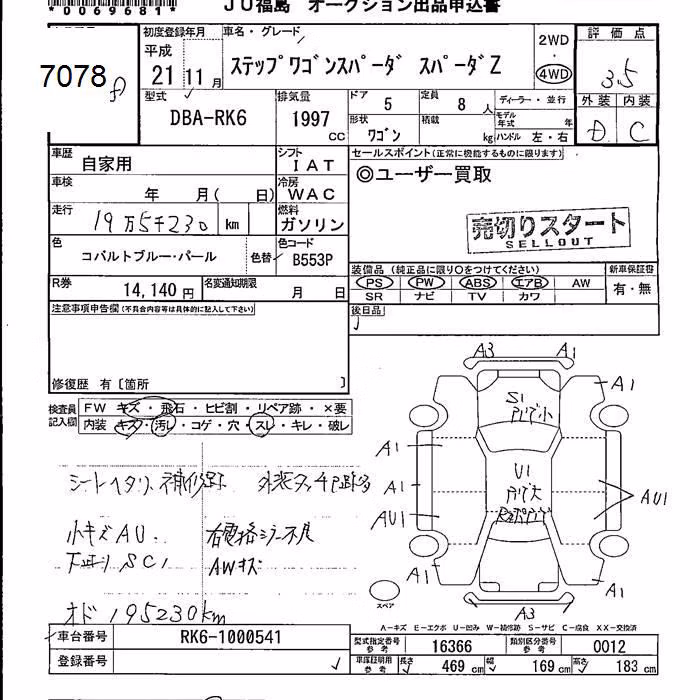 *0069681*
JU福島 オークション出品申込書
7078
初度登録年月
平成
21 11 月
車名・グレード
ステップワゴンスパーダ スパーダZ
2WD
・
4WD
評価点
3.5
外装 内装
D C
型式
DBA-RK6
排気量
1997
CC
ドア 5
定員 8 人
ディーラー・並行
形状 ワゴン
積載 kg
モデル年式 年
ハンドル 左・右
車歴 自家用
シフト IAT
車検 年 月( 日)
冷房 WAC
走行 19万5千230 km
燃料 ガソリン
色 コバルトブルー・パール 色替
色コード B553P
R券 14,140 円
名変通知期限 月 日
セールスポイント(正常に機能するものに限ります)
◎ユーザー買取
売切りスタート
SELLOUT
装備品(純正品に限り○をつけてください)
新車保証書
PS PW ABS エアB AW
SR ナビ TV カワ
有・無
後日品
注意事項申告欄(不具合内容等は具体的に記入して下さい)
修復歴 有〔箇所 〕
検査員記入欄
FW キズ・飛石・ヒビ割・リペア跡・×要
内装 キズ・汚レ・コゲ・穴・スレ・キレ・破レ
シートヘタリ・補修跡 外装タッチP跡多
小キズAU. 右電格ミラー不良
下廻りSC1 AWキズ
オド195230km
A3 A1
A1
S1
A1
A1
U1
AU1
AU1
A1
A1
A3
スペア
A-キズ E-エクボ U-凹み W-補修跡 S-サビ C-腐食 XX-交換済
車台番号 RK6-1000541
登録番号
型式指定番号 参考 16366
類別区分番号 参考 0012
車庫証明用 参考 長さ 469 cm 幅 169 cm 高さ 183 cm